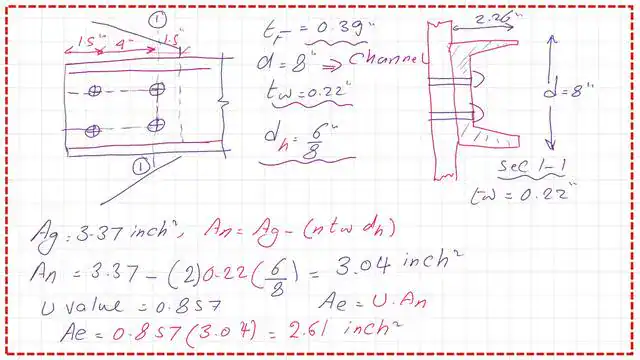 1
1.5" 4" 1.5"
tF = 0.39"
d = 8" ⇒ Channel
tw = 0.22"
dh = 6/8"
1
2.26"
d = 8"
sec 1-1
tw = 0.22"
Ag = 3.37 inch², An = Ag - (n tw dh)
An = 3.37 - (2) 0.22 (6/8) = 3.04 inch²
U value = 0.857 Ae = U. An
Ae = 0.857 (3.04) = 2.61 inch²